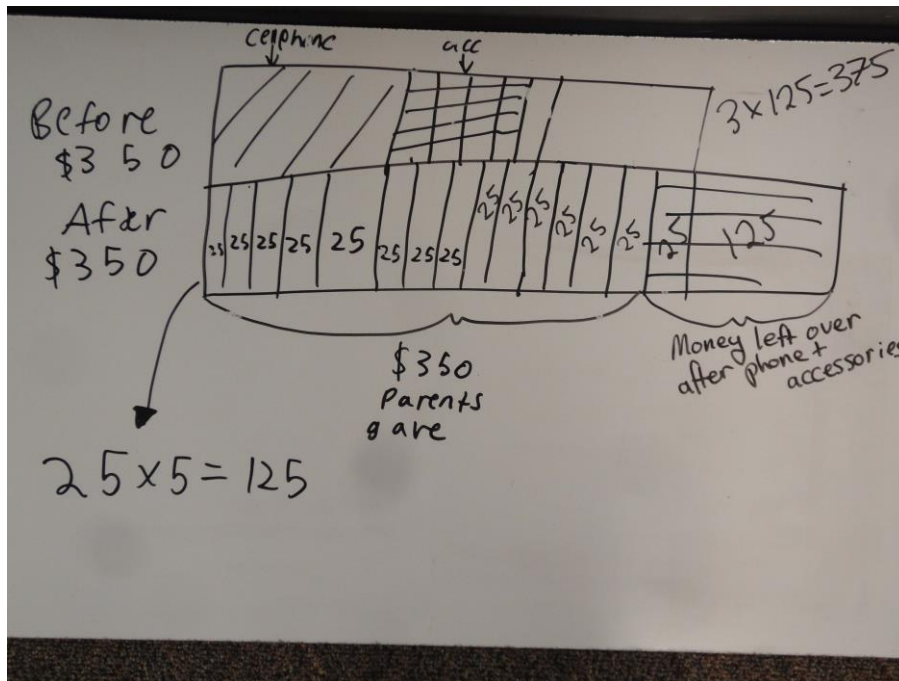 cellphine
acc
3×125=375
Before
$350
After
$350
25 25 25 25 25 25 25 25 25 25 25 25 25 25 25 125
$350
Parents
gave
Money left over
after phone+
accessories
25×5=125